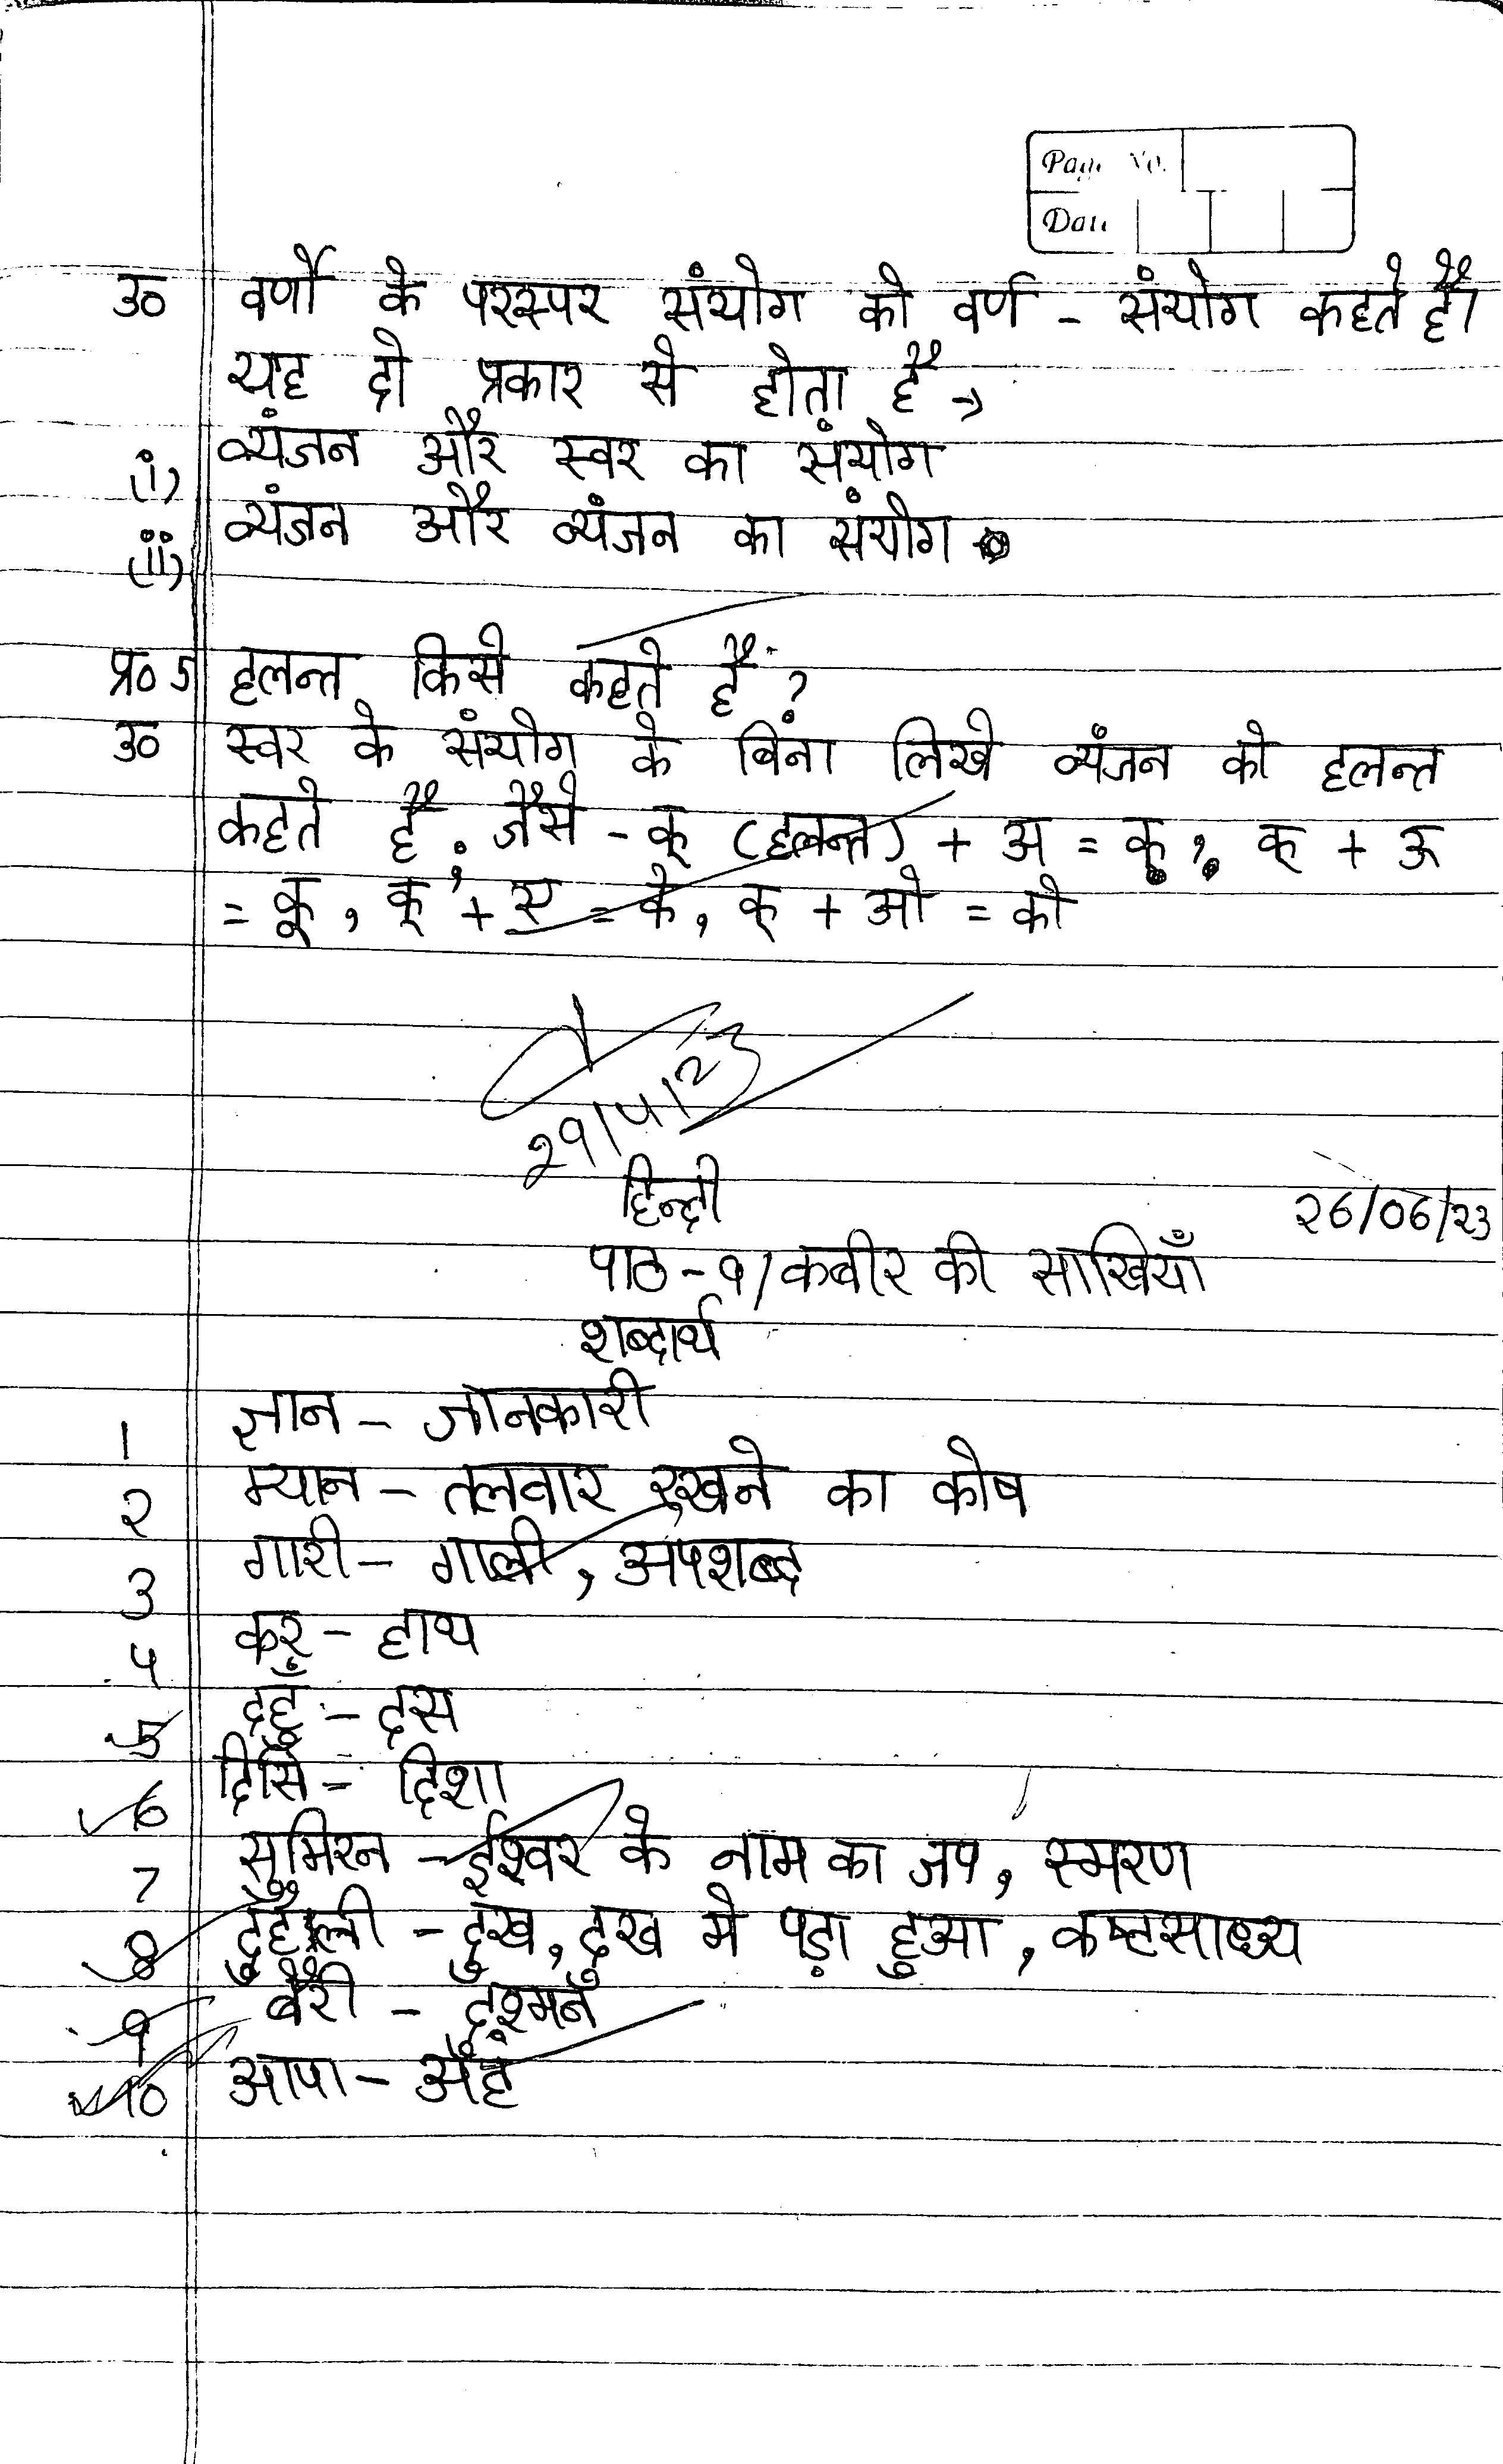 Page No.
Date
उ० वर्णों के परस्पर संयोग को वर्ण - संयोग कहते हैं।
यह दो प्रकार से होता है →
(i) व्यंजन और स्वर का संयोग
(ii) व्यंजन और व्यंजन का संयोग
प्र० 5 हलन्त किसे कहते हैं ?
उ० स्वर के संयोग के बिना लिखे व्यंजन को हलन्त
कहते हैं. जैसे - क् (हलन्त) + अ = क, क् + ऊ
= कू, क् + ए = के, क् + ओ = को
29/4/23
हिन्दी 26/06/23
पाठ - 9/ कबीर की साखियाँ
शब्दार्थ
1 ज्ञान - जानकारी
2 म्यान - तलवार रखने का कोष
3 गारी - गाली, अपशब्द
4 कर - हाथ
5 दहुँ - दस
6 दिसि - दिशा
7 सुमिरन - ईश्वर के नाम का जप, स्मरण
8 दुहैली - दुख, दुख मे पड़ा हुआ, कष्टसाध्य
9 बैरी - दुश्मन
10 आपा - अहं